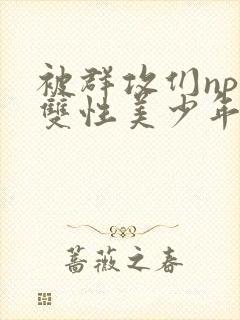 被群攻们np
雙性美少年
蔷薇之春